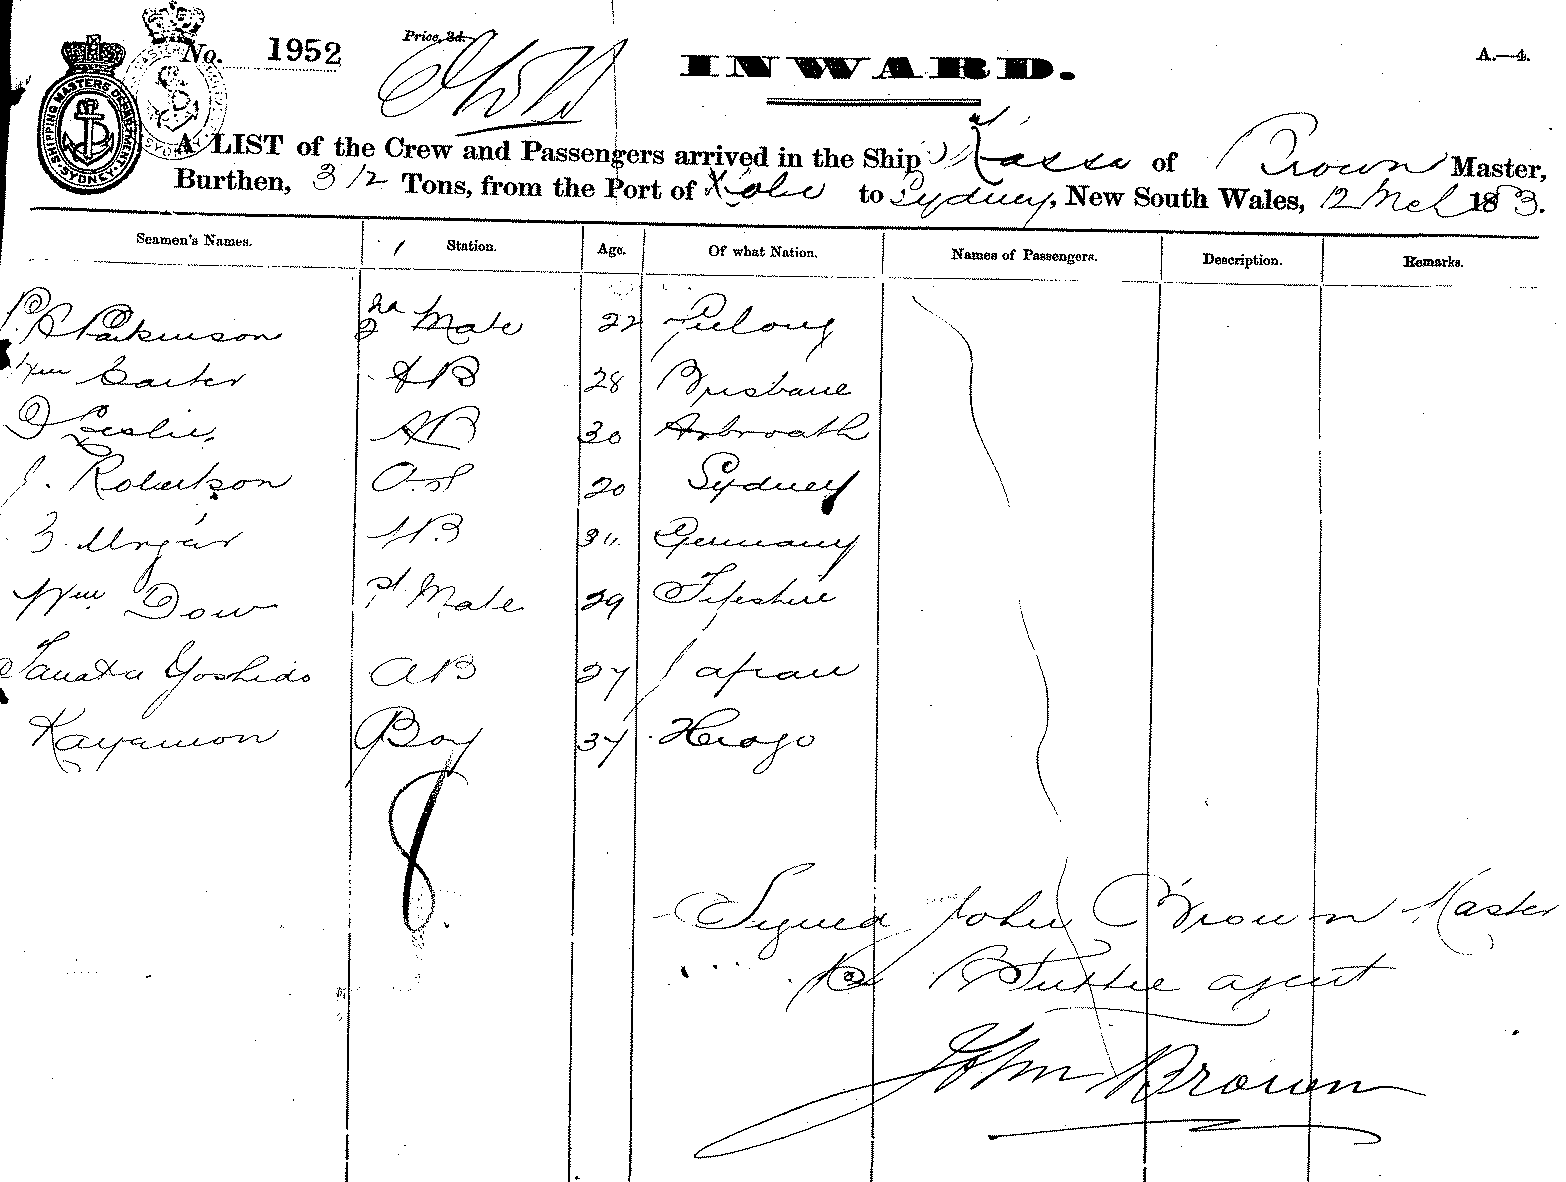 No. 1952
Price, 3d.
INWARD.
A.—4.
SHIPPING MASTERS DEPARTMENT SYDNEY
A LIST of the Crew and Passengers arrived in the Ship Kassa of Brown Master,
Burthen, 312 Tons, from the Port of Kobe to Sydney, New South Wales, 12 Mch 1883.
Seamen's Names. Station. Age. Of what Nation. Names of Passengers. Description. Remarks.
Parkinson 2nd Mate 22 Geelong
Wm Carter AB 28 Brisbane
D Leslie AB 30 Arbroath
J. Robertson O.S 20 Sydney
AB Germany
Wm Dow 1st Mate 29 Fifeshire
Yoshido AB 27 Japan
Boy 37 Heogo
8
Signed John Brown Master
agent
John Brown